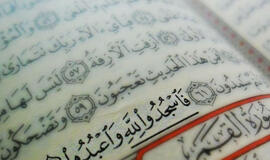 ءَالَآءِ رَبِّكَ تَتَمَارَىٰ
أَزِفَتِ الْآزِفَةُ ٥٧ لَيْسَ لَهَا
هَٰذَا الْحَدِيثِ تَعْجَبُونَ ٥٩ وَتَضْحَكُونَ
سَامِدُونَ ٦١ فَاسْجُدُوا لِلَّهِ وَاعْبُدُوا
سُورَةُ الْقَمَرِ